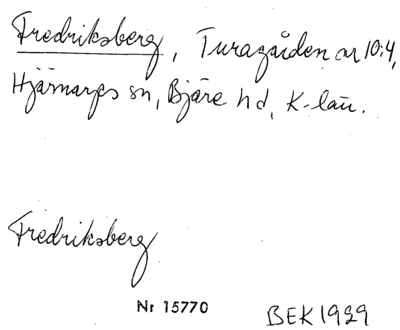 Fredriksberg, Turagården nr 10:4,
Hjärnarps sn, Bjäre hd, K-län.
Fredriksberg
Nr 15770
BEK 1929